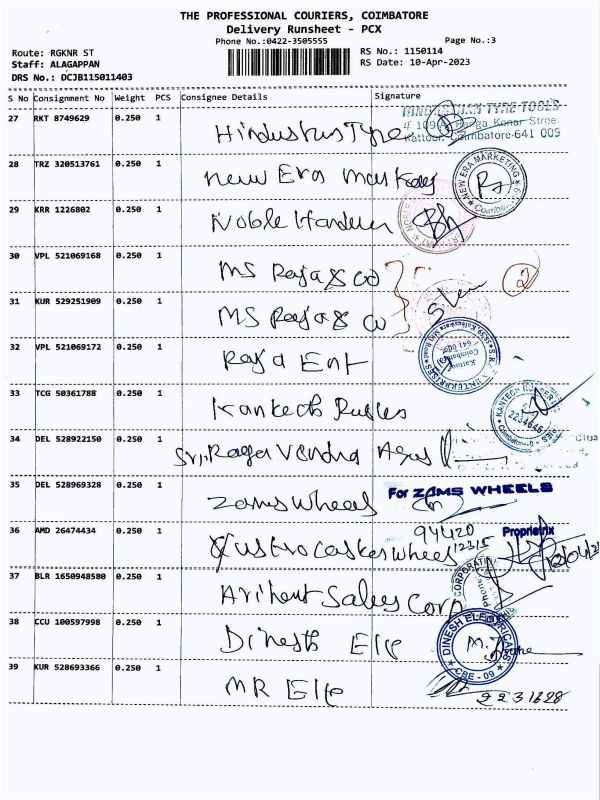 THE PROFESSIONAL COURIERS, COIMBATORE
Delivery Runsheet - PCX
Phone No.:0422-3505555 Page No.:3
Route: RGKNR ST RS No.: 1150114
Staff: ALAGAPPAN RS Date: 10-Apr-2023
DRS No.: DCJB115011403
S No Consignment No Weight PCS Consignee Details Signature
27 RKT 8749629 0.250 1 Hindustan Tyre
HINDUSTHAN TYRE TOOLS
Ranga Konar Street
Kattoor, Coimbatore-641 009
28 TRZ 320513761 0.250 1 New Era Marketing
NEW ERA MARKETING
29 KRR 1226802 0.250 1 Noble Harden
30 VPL 521069168 0.250 1 MS Raja & co
2
31 KUR 529251909 0.250 1 MS Raja & co
32 VPL 521069172 0.250 1 Raja Ent
ENTERPRISES
Kattoor
Coimbatore
33 TCG 50361788 0.250 1 Kantech Rubber
KANTECH RUBBER
2234646
34 DEL 528922150 0.250 1 Sri Ragavendra
35 DEL 528969328 0.250 1 Zams wheels
For ZAMS WHEELS
94420
Proprietrix
36 AMD 26474434 0.250 1
37 BLR 1650948580 0.250 1 Arihent Sales Corp
38 CCU 100597998 0.250 1 Dinesh Ele
DINESH ELECTRICALS
CBE - 09
39 KUR 528693366 0.250 1 MR Ele
2231628